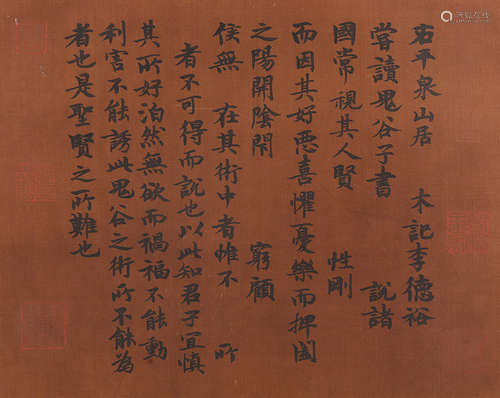 右平泉山居 木記李德裕
嘗讀鬼谷子書 說諸
國常視其人賢 性剛
而因其好惡喜懼憂樂而捭闔
之陽開陰閉 窮顧
侯無 在其術中者惟不 所
者不可得而說也以此知君子宜慎
其所好泊然無欲而禍福不能動
利害不能誘此鬼谷之術所不能為
者也是聖賢之所難也